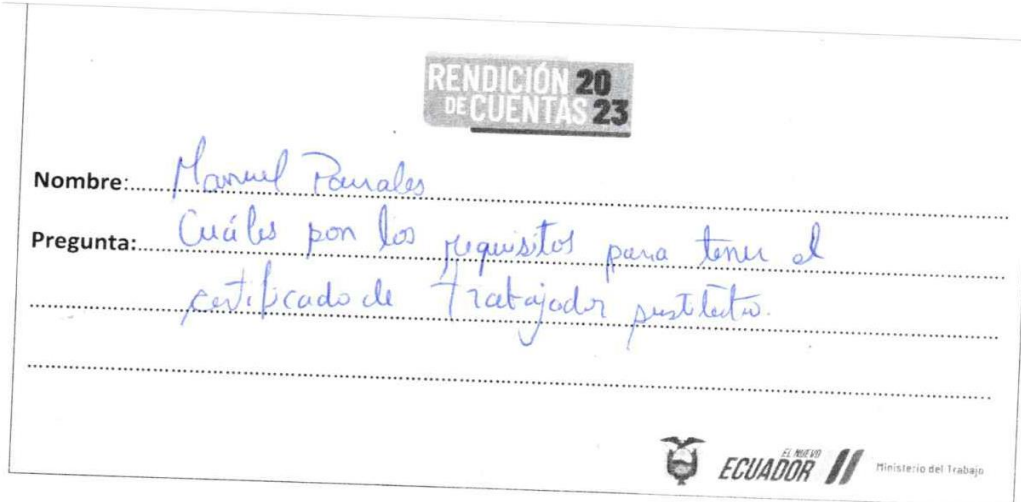 RENDICIÓN 20
DE CUENTAS 23
Nombre: Manuel Parrales
Pregunta: Cuáles son los requisitos para tener el
certificado de Trabajador sustituto.
EL NUEVO
ECUADOR
Ministerio del Trabajo